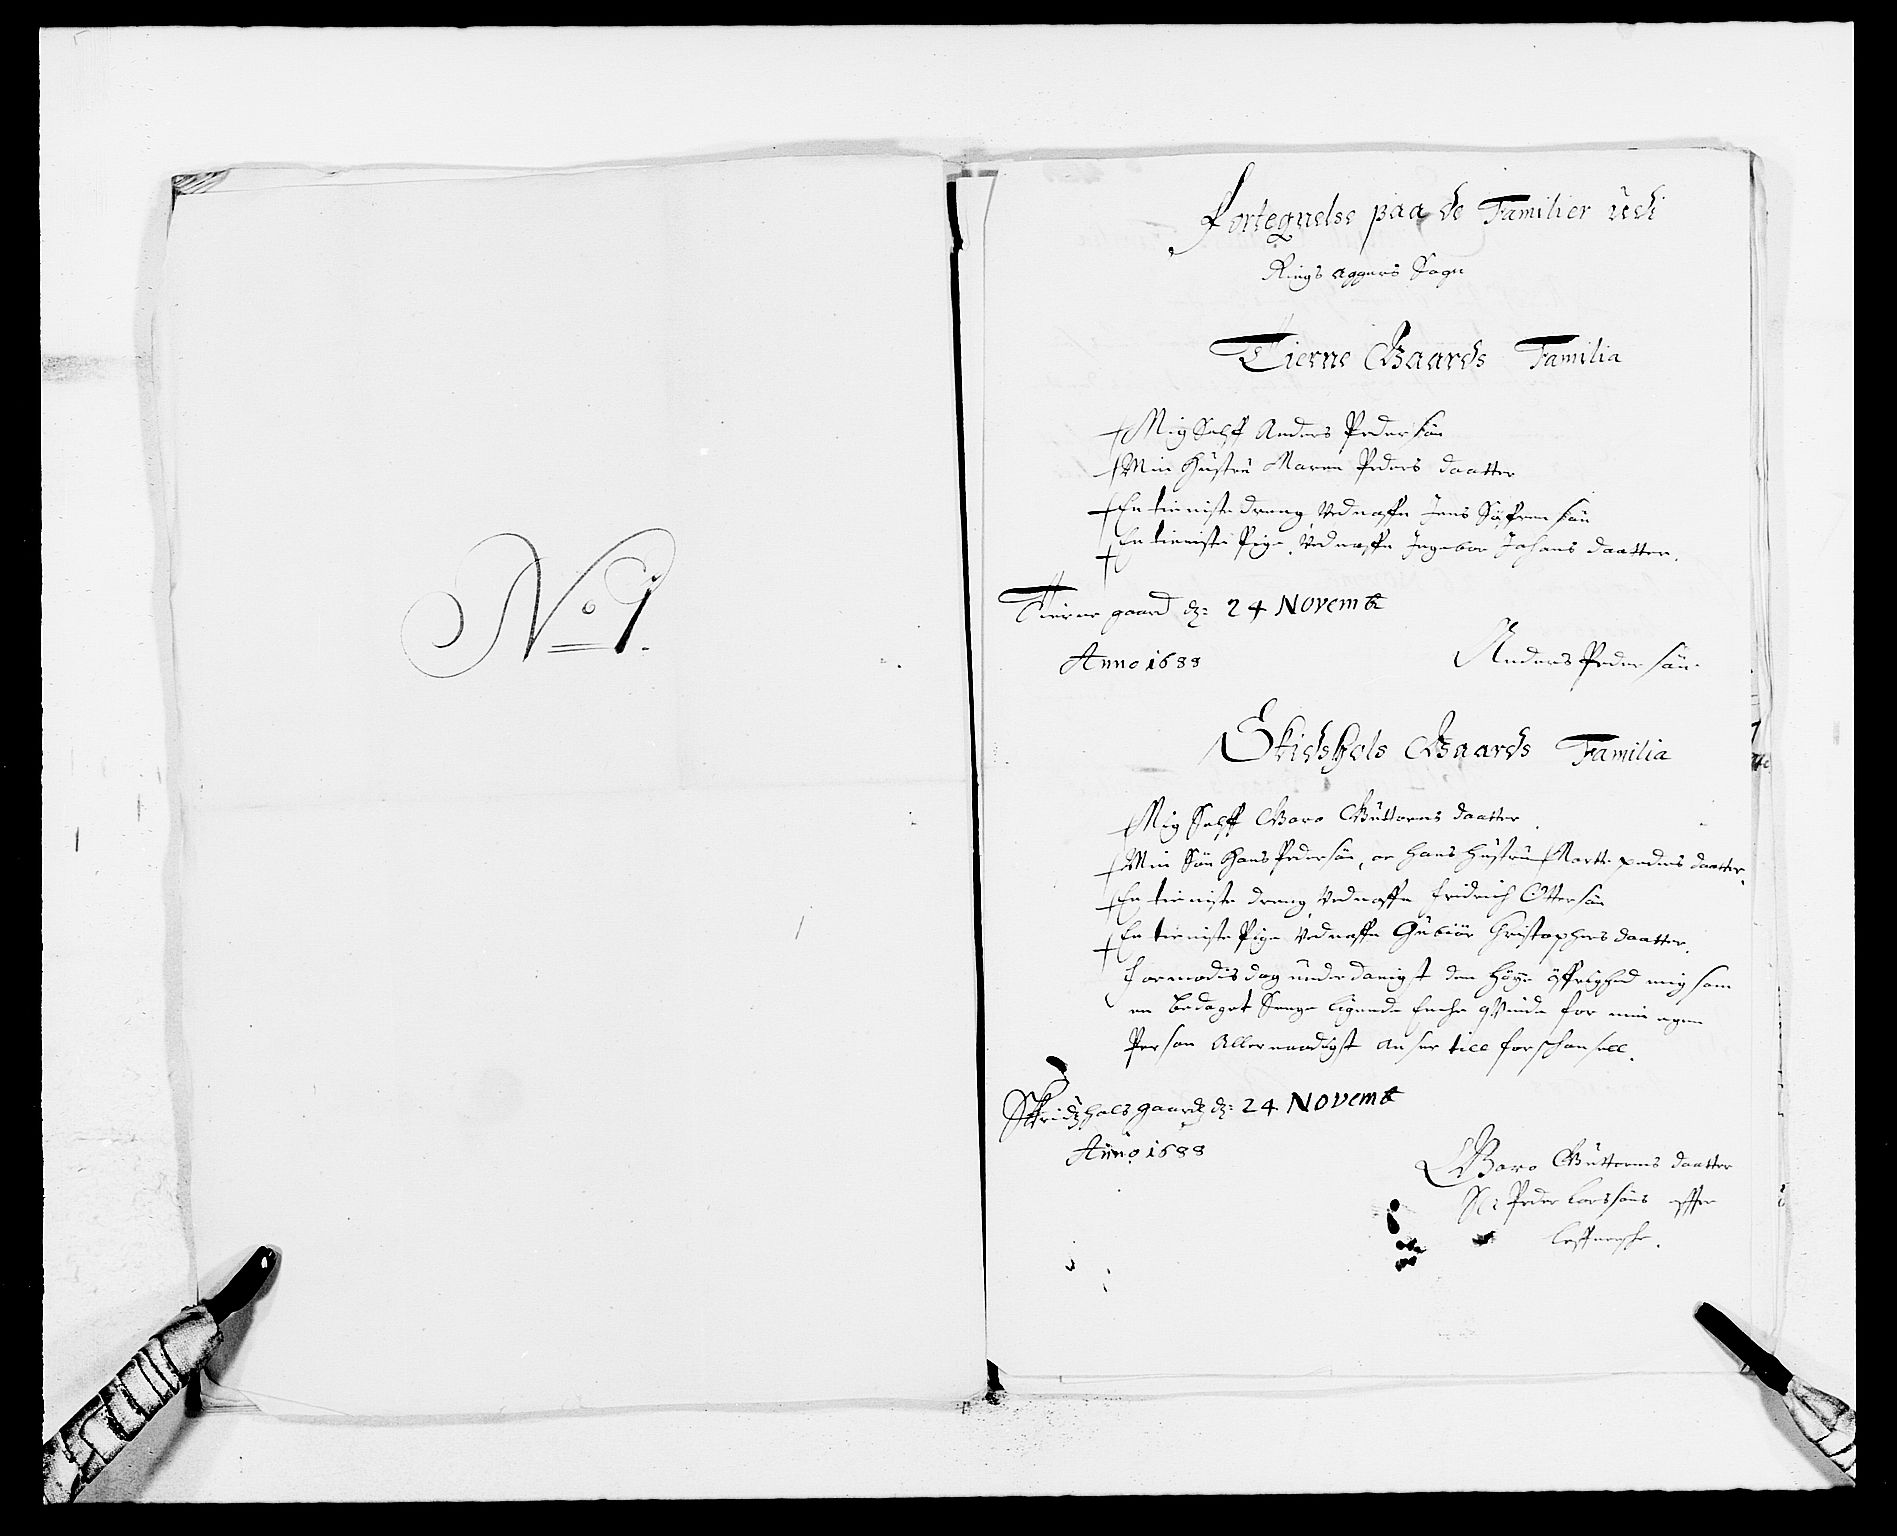 No 1.
Fortegnelse paa de Familier udi
Rings aggers Sogn
Tierne Gaards Familia
Mig Selff Anders Pedersøn
Min Hustru Maren Peders daatter
En tieniste dreng Vednaffn Jens Søffrensøn
En tieniste Pige Vednaffn Ingebor Johans daatter.
Tierne gaard dz: 24 Novemb
Anno 1688
Anders Pedersøn.
Skidshols Gaards Familia
Mig Selff Goro Guttorms daatter
Min Søn Hans Pedersøn, oc hans hustru Marte peders daatter.
En tieniste dreng Vednaffn fridrich Ottersøn
En tieniste Pige Vednaffn Gubiør Christophers daatter.
formodis dog underdanigst den høye øffrighed mig som
en bedaget Senge ligende Enche qvinde for min egen
Person Allernaadigst anser till forschonsell.
Skridzhols gaardz dz: 24 Novemb
Anno 1688
Goro Guttorms daatter
Sl: Peder Larssøns effter
leffuersche.